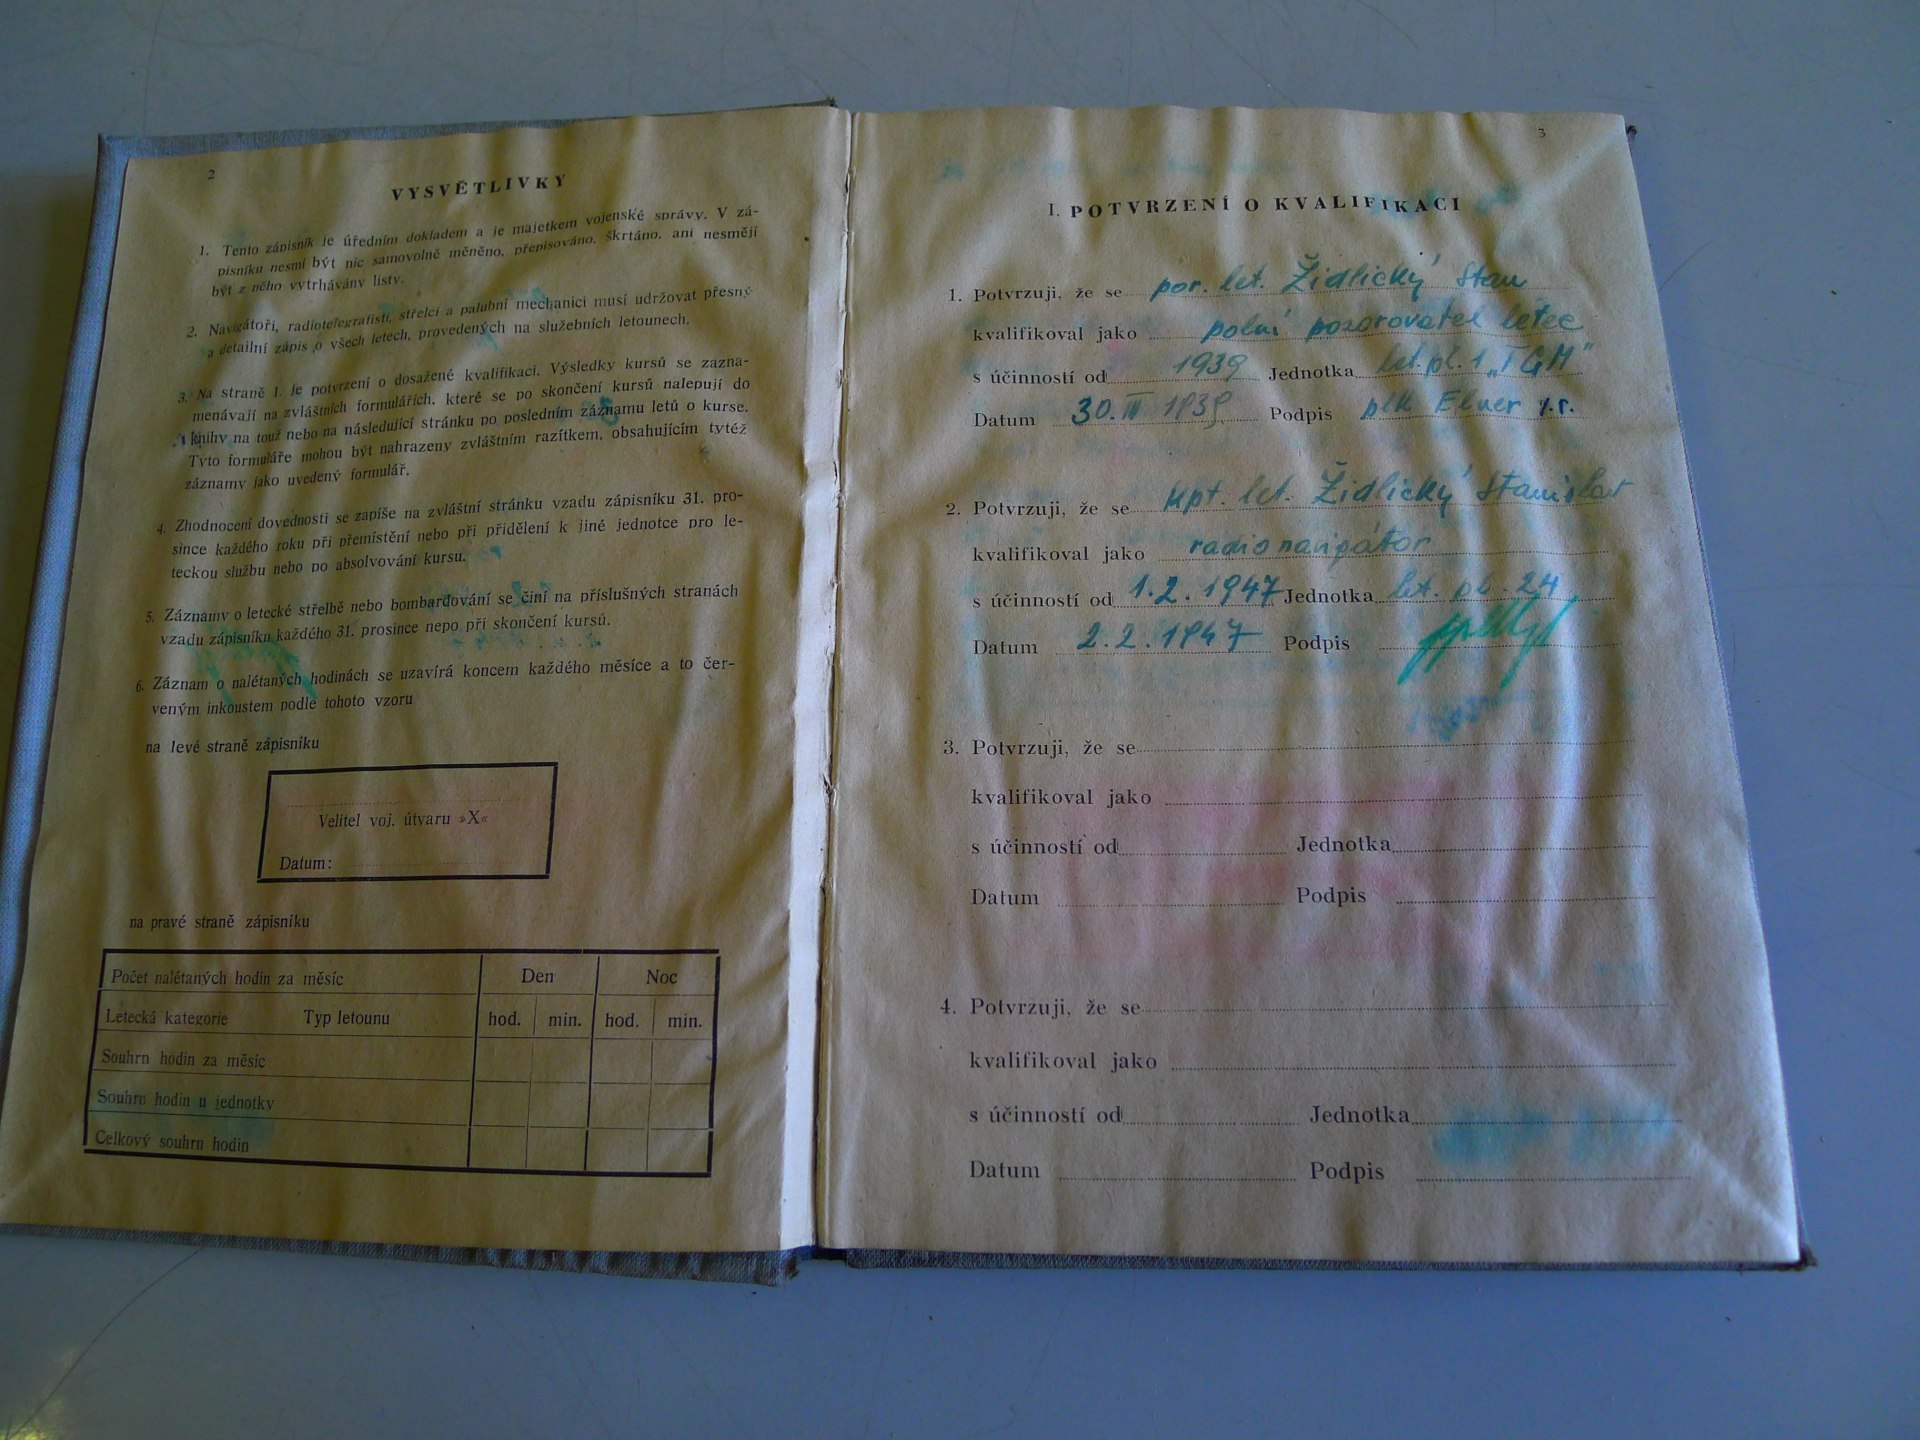 2
VYSVĚTLIVKY
1. Tento zápisník je úředním dokladem a je majetkem vojenské správy. V zá-
pisníku nesmí být nic samovolně měněno, přepisováno, škrtáno, ani nesmějí
být z něho vytrhávány listy.
2. Navigátoři, radiotelegrafisti, střelci a palubní mechanici musí udržovat přesný
a detailní zápis o všech letech, provedených na služebních letounech.
3. Na straně 1. je potvrzení o dosažené kvalifikaci. Výsledky kursů se zazna-
menávají na zvláštních formulářích, které se po skončení kursů nalepují do
knihy na touž nebo na následující stránku po posledním záznamu letů o kurse.
Tyto formuláře mohou být nahrazeny zvláštním razítkem, obsahujícím tytéž
záznamy jako uvedený formulář.
4. Zhodnocení dovednosti se zapíše na zvláštní stránku vzadu zápisníku 31. pro-
since každého roku při přemístění nebo při přidělení k jiné jednotce pro le-
teckou službu nebo po absolvování kursu.
5. Záznamy o letecké střelbě nebo bombardování se činí na příslušných stranách
vzadu zápisníku každého 31. prosince nepo při skončení kursů.
6. Záznam o nalétaných hodinách se uzavírá koncem každého měsíce a to čer-
veným inkoustem podle tohoto vzoru
na levé straně zápisníku
Velitel voj. útvaru »X«
Datum:
na pravé straně zápisníku
Počet nalétaných hodin za měsíc Den Noc
Letecká kategorie Typ letounu hod. min. hod. min.
Souhrn hodin za měsíc
Souhrn hodin u jednotky
Celkový souhrn hodin
3
I. POTVRZENÍ O KVALIFIKACI
1. Potvrzuji, že se por. let. Židlický Stan
kvalifikoval jako polní pozorovatel letec
s účinností od 1939 Jednotka let. pl. 1 „TGM"
Datum 30. 1939 Podpis plk
2. Potvrzuji, že se kpt. let. Židlický Stanislav
kvalifikoval jako radionavigátor
s účinností od 1. 2. 1947 Jednotka let. pl. 24
Datum 2. 2. 1947 Podpis
3. Potvrzuji, že se
kvalifikoval jako
s účinností od Jednotka
Datum Podpis
4. Potvrzuji, že se
kvalifikoval jako
s účinností od Jednotka
Datum Podpis